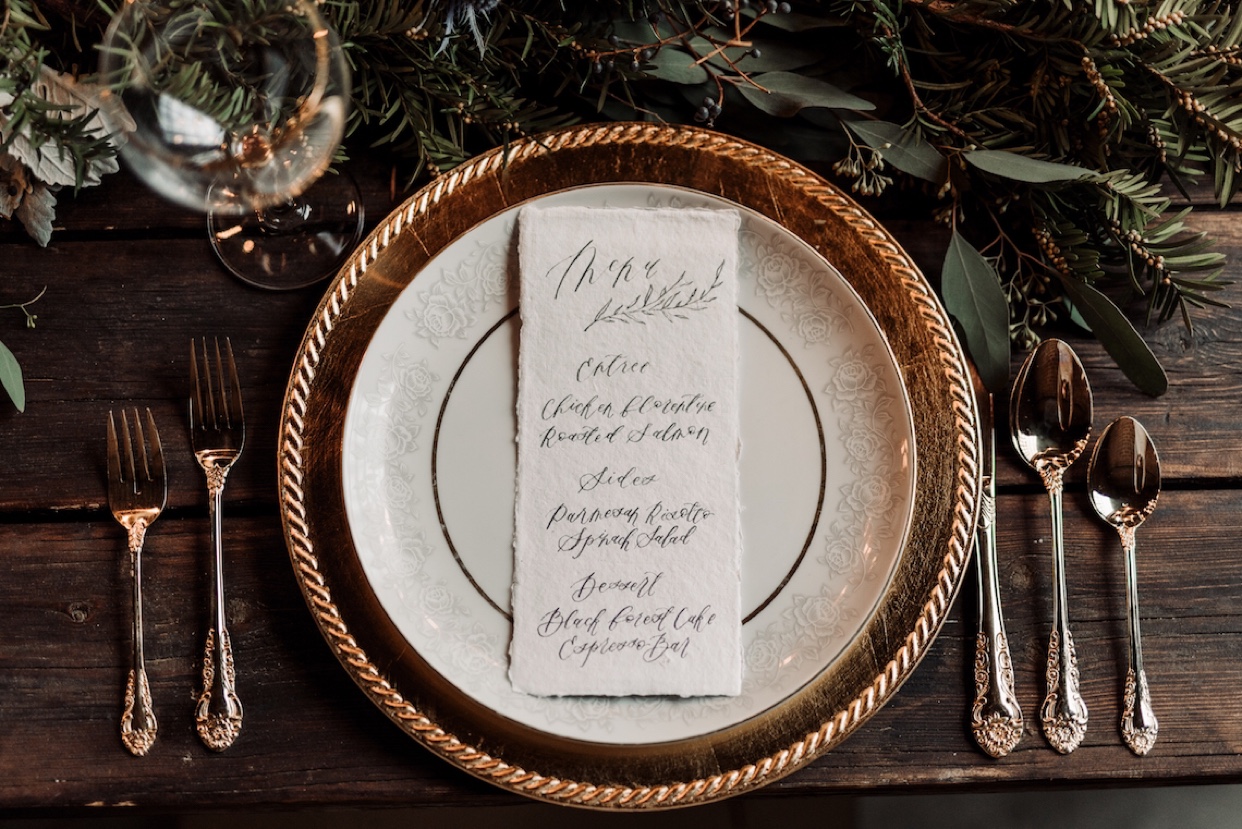 Menu
Entree
Chicken Florentine
Roasted Salmon
Sides
Parmesan Risotto
Spinach Salad
Dessert
Black Forest Cake
Espresso Bar